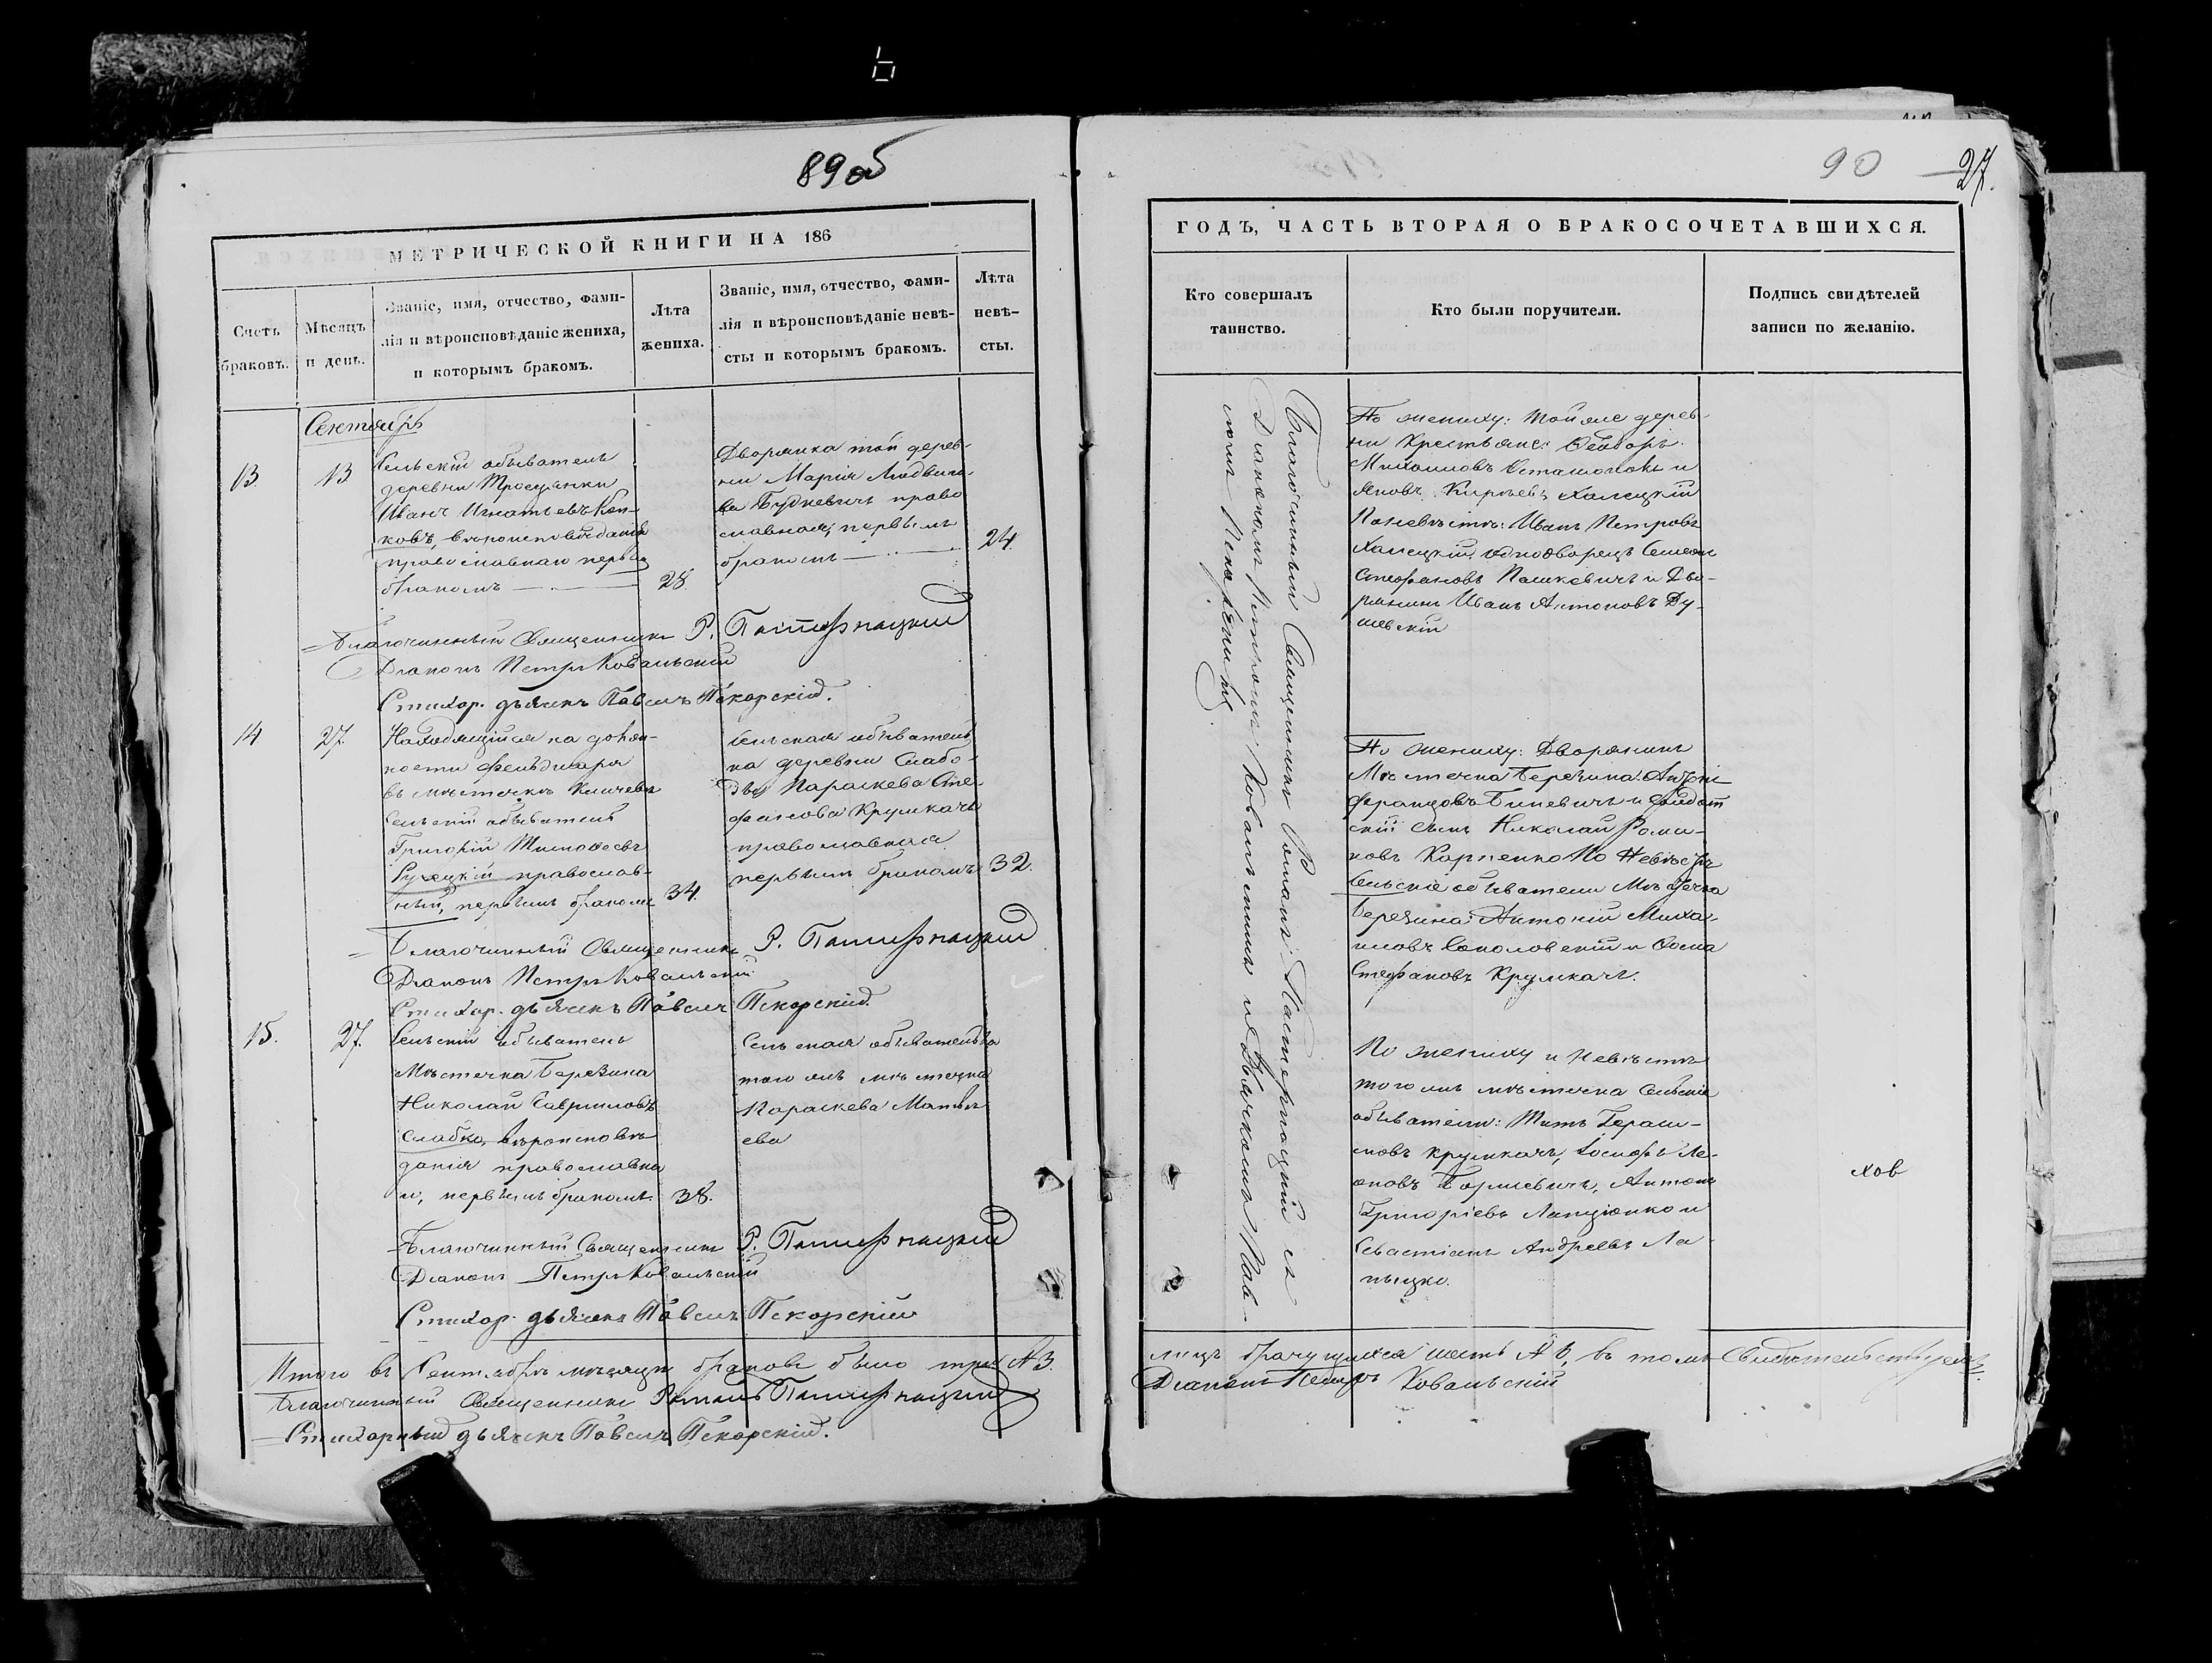 89 об
МЕТРИЧЕСКОЙ КНИГИ НА 186
Счетъ браковъ.
Мѣсяцъ и день.
Званіе, имя, отчество, фами-
лія и вѣроисповѣданіе жениха,
и которымъ бракомъ.
Лѣта
жениха.
Званіе, имя, отчество, фами-
лія и вѣроисповѣданіе невѣ-
сты и которымъ бракомъ.
Лѣта
невѣ-
сты.
Сентябрь
13.
13.
Сельскій обыватель
деревни Тросцянки
Иванъ Игнатьевъ Коп-
ковъ, вѣроисповѣданія
православнаго первымъ
бракомъ
28.
Дворянка той дерев-
ни Марія Людвико-
ва Будкевичъ право
славная, первымъ
бракомъ
24.
Благочинный Священникъ Р. Пастернацкій
Діаконъ Петръ Ковальскій
Стихар. дьячекъ Павелъ Пекарскій.
14
27.
Находящійся на долж-
ности фельдшера
въ мѣстечкѣ Кличевѣ
Сельскій обыватель
Григорій Тимофеевъ
Ружецкій православ-
ный, первымъ бракомъ
34.
Сельская обыватель
ка деревни Слабо-
ды Параскева Сте-
фанова Крумкачъ
православная
первымъ бракомъ
32.
Благочинный Священникъ Р. Пастернацкій
Діаконъ Петръ Ковальскій
Стихар. дьячекъ Павелъ Пекарскій.
15.
27.
Сельскій обыватель
Мѣстечка Березина
Николай Гавриловъ
Слабко, вѣроисповѣ
данія православна
го, первымъ бракомъ
38.
Сельская обывателька
того жъ мѣстечка
Параскева Матве
ева
Благочинный Священникъ Р. Пастернацкій
Діаконъ Петръ Ковальскій
Стихар. дьячекъ Павелъ Пекарскій
Итого въ Сентябрѣ мѣсяцѣ браковъ было три № 3.
Благочинный Священникъ Романъ Пастернацкій
Стихарный дьячекъ Павелъ Пекарскій.
90
27.
ГОДЪ, ЧАСТЬ ВТОРАЯ О БРАКОСОЧЕТАВШИХСЯ.
Кто совершалъ
таинство.
Кто были поручители.
Подпись свидѣтелей
записи по желанію.
Благочинный Священникъ Романъ Пастернацкій съ
Діакономъ Петромъ Ковальскимъ и Дьячкомъ Пав-
ломъ Пекарскимъ
По жениху: той же дерев-
ни крестьяне: Ѳеодоръ
Михаиловъ и
Яковъ Кирѣевъ Халецкій
По невѣстѣ: Иванъ Петровъ
Халецкій, однодворецъ Семенъ
Стефановъ Пашкевичъ и Дво-
рянинъ Иванъ Антоновъ Ду-
шевскій
По жениху: Дворянинъ
Мѣстечка Березина: Антоній
Францовъ Биневичъ и Солдат
скій сынъ Николай Рома-
новъ Карпенко По Невѣстѣ
Сельскіе обыватели Мѣстечка
Березина: Антоній Миха-
иловъ Соколовскій и Ѳома
Стефановъ Крумкачъ.
По жениху и Невѣстѣ
того жъ мѣстечка Сельскіе
обыватели: Титъ Гераси-
мовъ Крумкачъ, Іосифъ Ле-
оновъ Антонъ
Григоріевъ Лапцёнко и
Севастіанъ Андреевъ Ла
пыцко.
хов
лицъ брачущихся шесть № 6, въ томъ Свидѣтельствуемъ.
Діаконъ Петръ Ковальскій